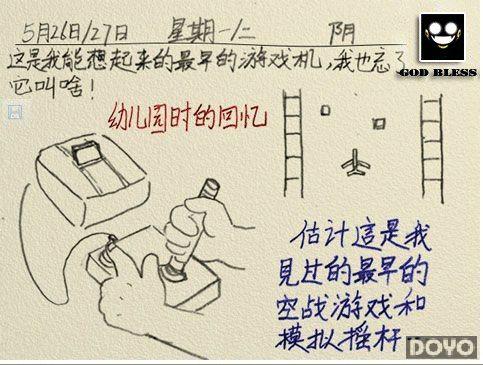 5月26日/27日 星期一/二 阴
GOD BLESS
这是我能想起来的最早的游戏机,我也忘了
它叫啥!
幼儿园时的回忆
估计這是我
見过的最早的
空战游戏和
模拟摇杆…
DOYO